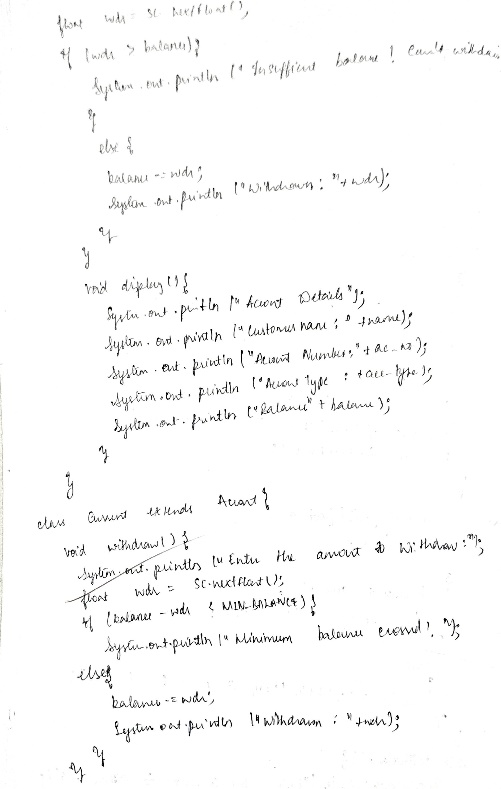 float wdr = sc.nextFloat();
if (wdr > balance){
System.out.println (" Insufficient balance ! Can't withdraw
}
else {
balance -= wdr;
System.out.println ("Withdrawn : "+ wdr);
}
}
void display () {
System.out.println (" Account Details");
System.out.println ("Customer name : " +name);
System.out.println ("Account Number:" + ac_no);
System.out.println ("Account Type : + acc-type);
System.out.println ("Balance" + balance);
}
}
class Current extends Account {
void withdraw() {
System.out.println (" Enter the amount to withdraw : ");
float wdr = sc.nextFloat();
if (balance - wdr < MIN_BALANCE) {
System.out.println (" Minimum balance crossed! ");
else{
balance -= wdr;
System.out.println ("withdrawn : " +wdr);
}
}